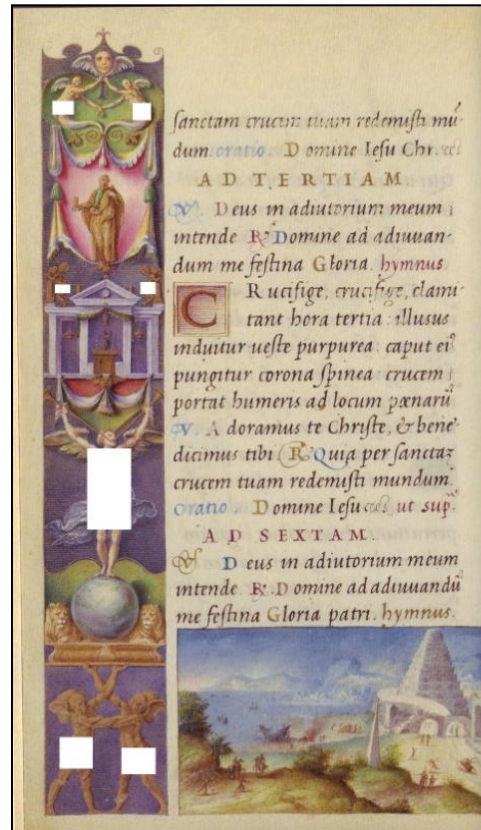 sanctam crucem tuam redemisti mū
dum oratio. Domine Iesu Chr.
AD TERTIAM
V. Deus in adiutorium meum
intende R. Domine ad adiuuan-
dum me festina Gloria. hymnus.
CRucifige, crucifige, clami
tant hora tertia: illusus
induitur ueste purpurea: caput ei9
pungitur corona spinea: crucem
portat humeris ad locum pænarū
V. Adoramus te Christe, & bene-
dicimus tibi R. Quia per sanctaz
crucem tuam redemisti mundum.
Oratio. Domine Iesu ut sup.
AD SEXTAM.
V. Deus in adiutorium meum
intende R. Domine ad adiuuandū
me festina Gloria patri. hymnus.